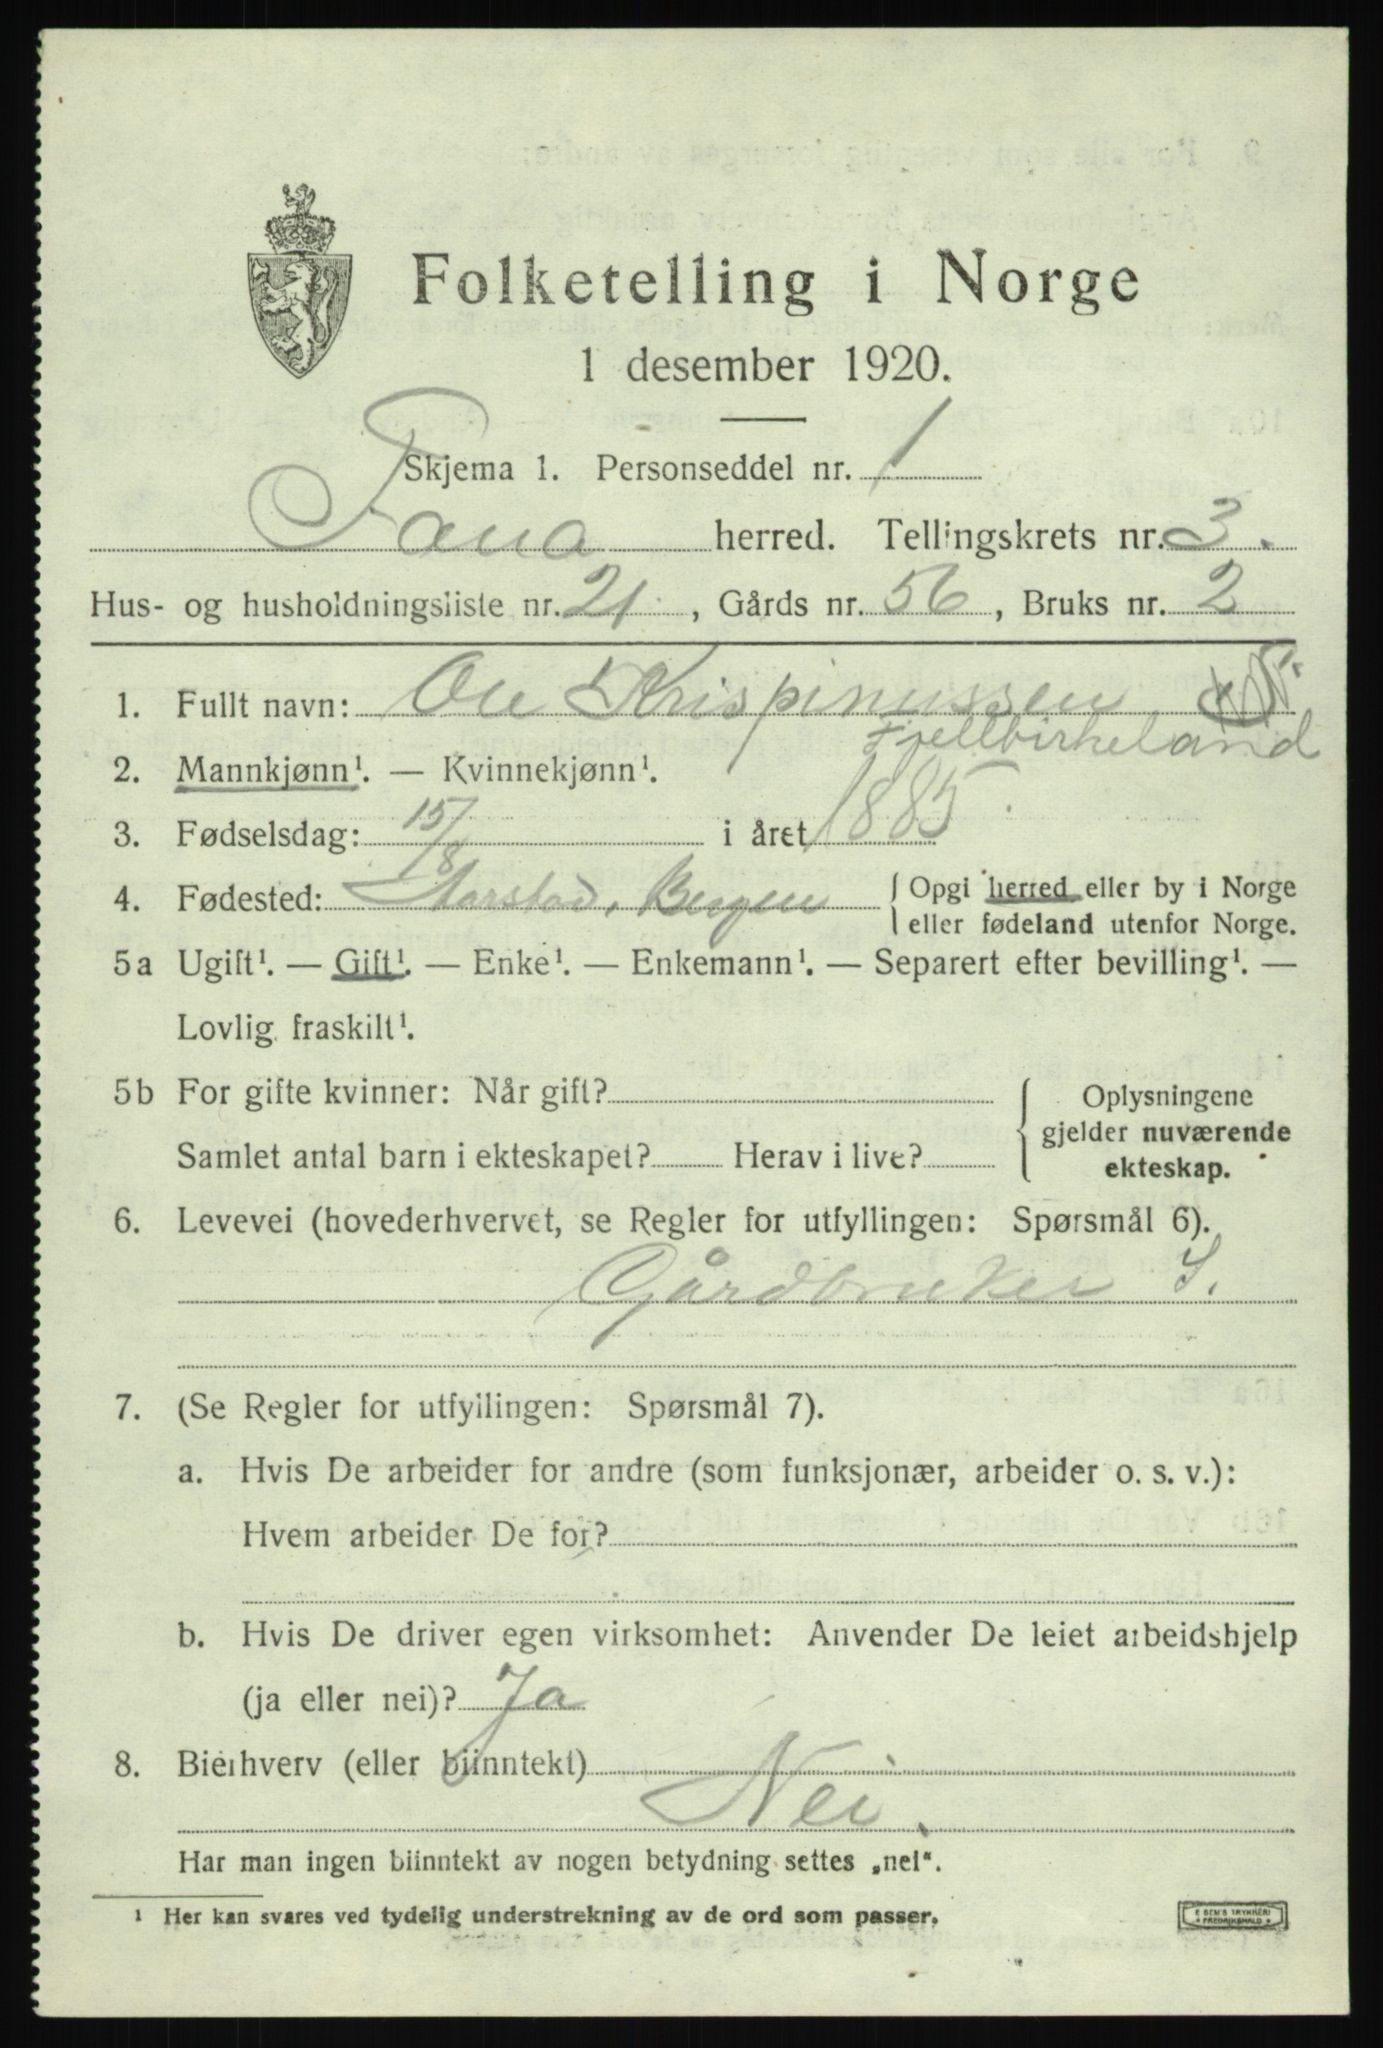 Folketelling i Norge
1 desember 1920.
Skjema 1. Personseddel nr. 1
Fana herred. Tellingskrets nr. 3.
Hus- og husholdningsliste nr. 21, Gårds nr. 56, Bruks nr. 2
1. Fullt navn: Ole Krispinussen
Fjellbirkeland
2. Mannkjønn¹. — Kvinnekjønn¹.
3. Fødselsdag: 15/8 i året 1885
4. Fødested: Aarstad, Bergen { Opgi herred eller by i Norge
eller fødeland utenfor Norge.
5a Ugift¹. — Gift¹. — Enke¹. — Enkemann¹. — Separert efter bevilling¹. —
Lovlig fraskilt¹.
5b For gifte kvinner: Når gift? { Oplysningene
Samlet antal barn i ekteskapet? Herav i live? gjelder nuværende
ekteskap.
6. Levevei (hovederhvervet, se Regler for utfyllingen: Spørsmål 6).
Gårdbruker S.
7. (Se Regler for utfyllingen: Spørsmål 7).
a. Hvis De arbeider for andre (som funksjonær, arbeider o. s. v.):
Hvem arbeider De for?
b. Hvis De driver egen virksomhet: Anvender De leiet arbeidshjelp
(ja eller nei)? Ja
8. Bierhverv (eller biinntekt)
Nei.
Har man ingen biinntekt av nogen betydning settes „nei“.
¹ Her kan svares ved tydelig understrekning av de ord som passer.
E SEM'S TRYKKERI
FREDRIKSHALD